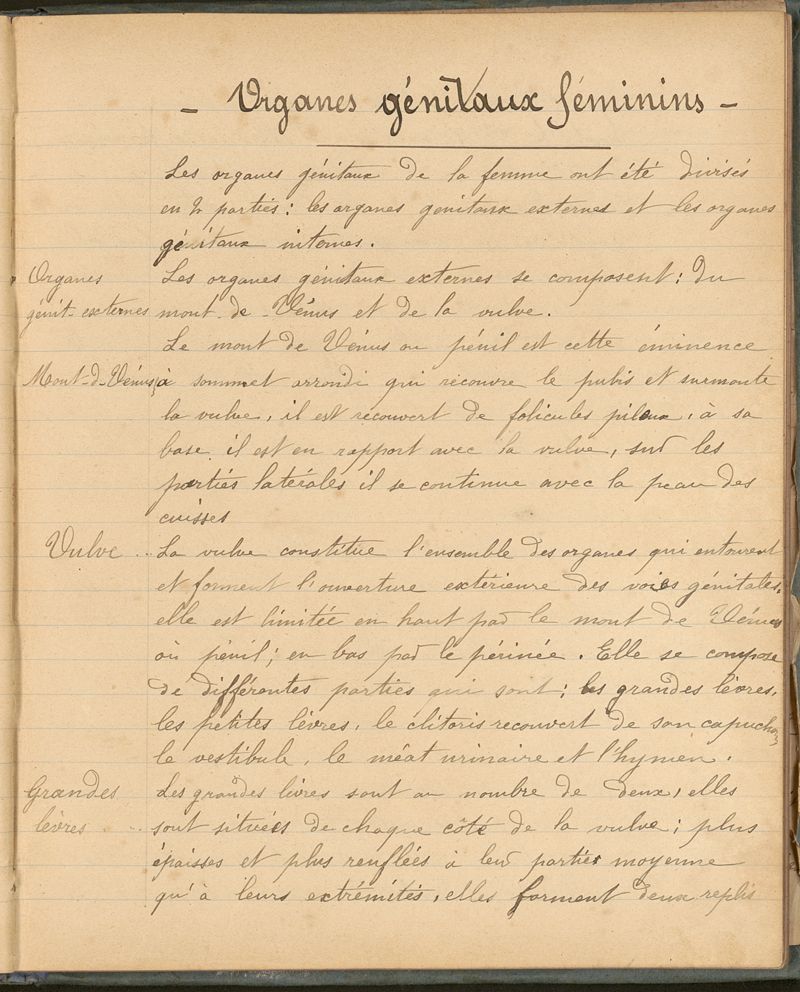 - Organes génitaux féminins -
Les organes génitaux de la femme ont été divisés
en 2 parties : les organes genitaux externes et les organes
génitaux internes.
Organes
génit- externes
Les organes génitaux externes se composent : du
mont-de-Vénus et de la vulve.
Le mont de Vénus ou pénil est cette éminence
Mont-d-Vénus
à sommet arrondi qui recouvre le pubis et surmonte
la vulve, il est recouvert de folicules pileux, à sa
base il est en rapport avec la vulve, sur les
parties latérales il se continue avec la peau des
cuisses
Vulve ..
La vulve constitue l'ensemble des organes qui entourent
et forment l'ouverture extérieure des voies génitales.
elle est limitée en haut par le mont de Vénus
ou pénil ; en bas par le périnée. Elle se compose
de différentes parties qui sont : les grandes lèvres,
les petites lèvres, le clitoris recouvert de son capuchon,
le vestibule, le méat urinaire et l'hymen.
Grandes
lèvres ..
Les grandes lèvres sont au nombre de deux, elles
sont situées de chaque côté de la vulve ; plus
épaisses et plus renflées à leur parties moyenne
qu'à leurs extrémités, elles forment deux replis